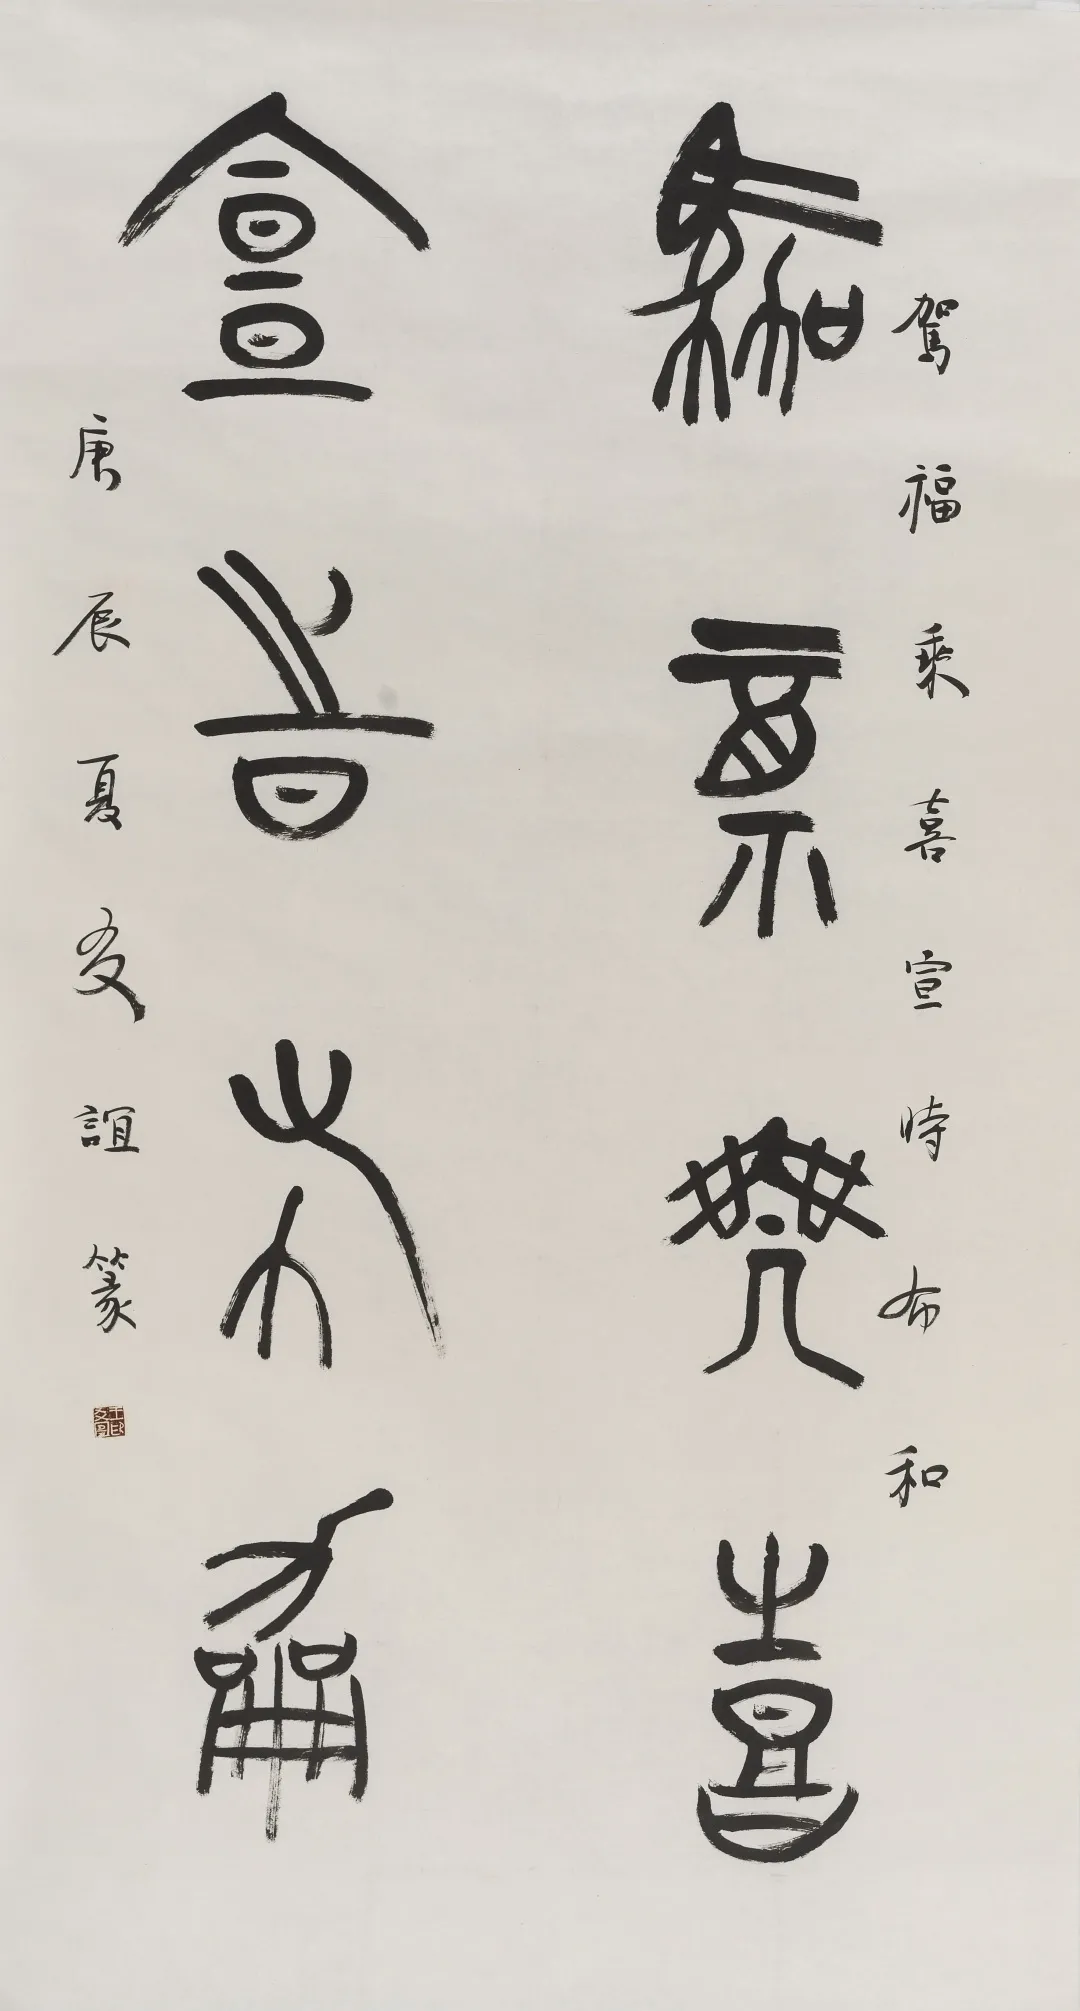 駕福乘喜宣時布和
駕福乘喜
宣時布和
庚辰夏友誼篆